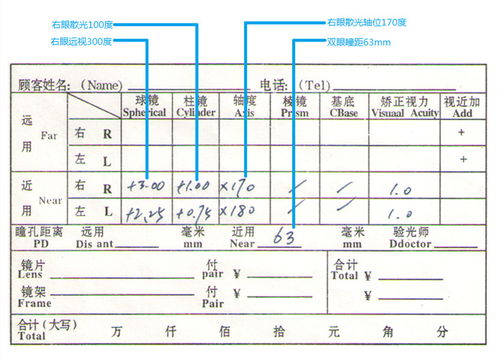 右眼散光100度 右眼散光轴位170度
右眼远视300度 双眼瞳距63mm
顾客姓名:(Name) 电话:(Tel)
球镜 柱镜 轴度 棱镜 基底 矫正视力 视近加
Spherical Cylinder Axis Prism CBase Visuaal Acuity Add
远用 Far 右 R +
左 L +
近用 Near 右 R +3.00 +1.00 ×170 / / 1.0
左 L +2.25 +0.75 ×180 1.0
瞳孔距离 远用 毫米 近用 63 毫米 验光师
PD Dis ant mm Near mm Ddoctor
镜片 付 ¥ 合计
Lens pair Total ¥
镜架 付 ¥ ¥
Frame Pair
合计(大写) 万 仟 佰 拾 元 角 分
Total